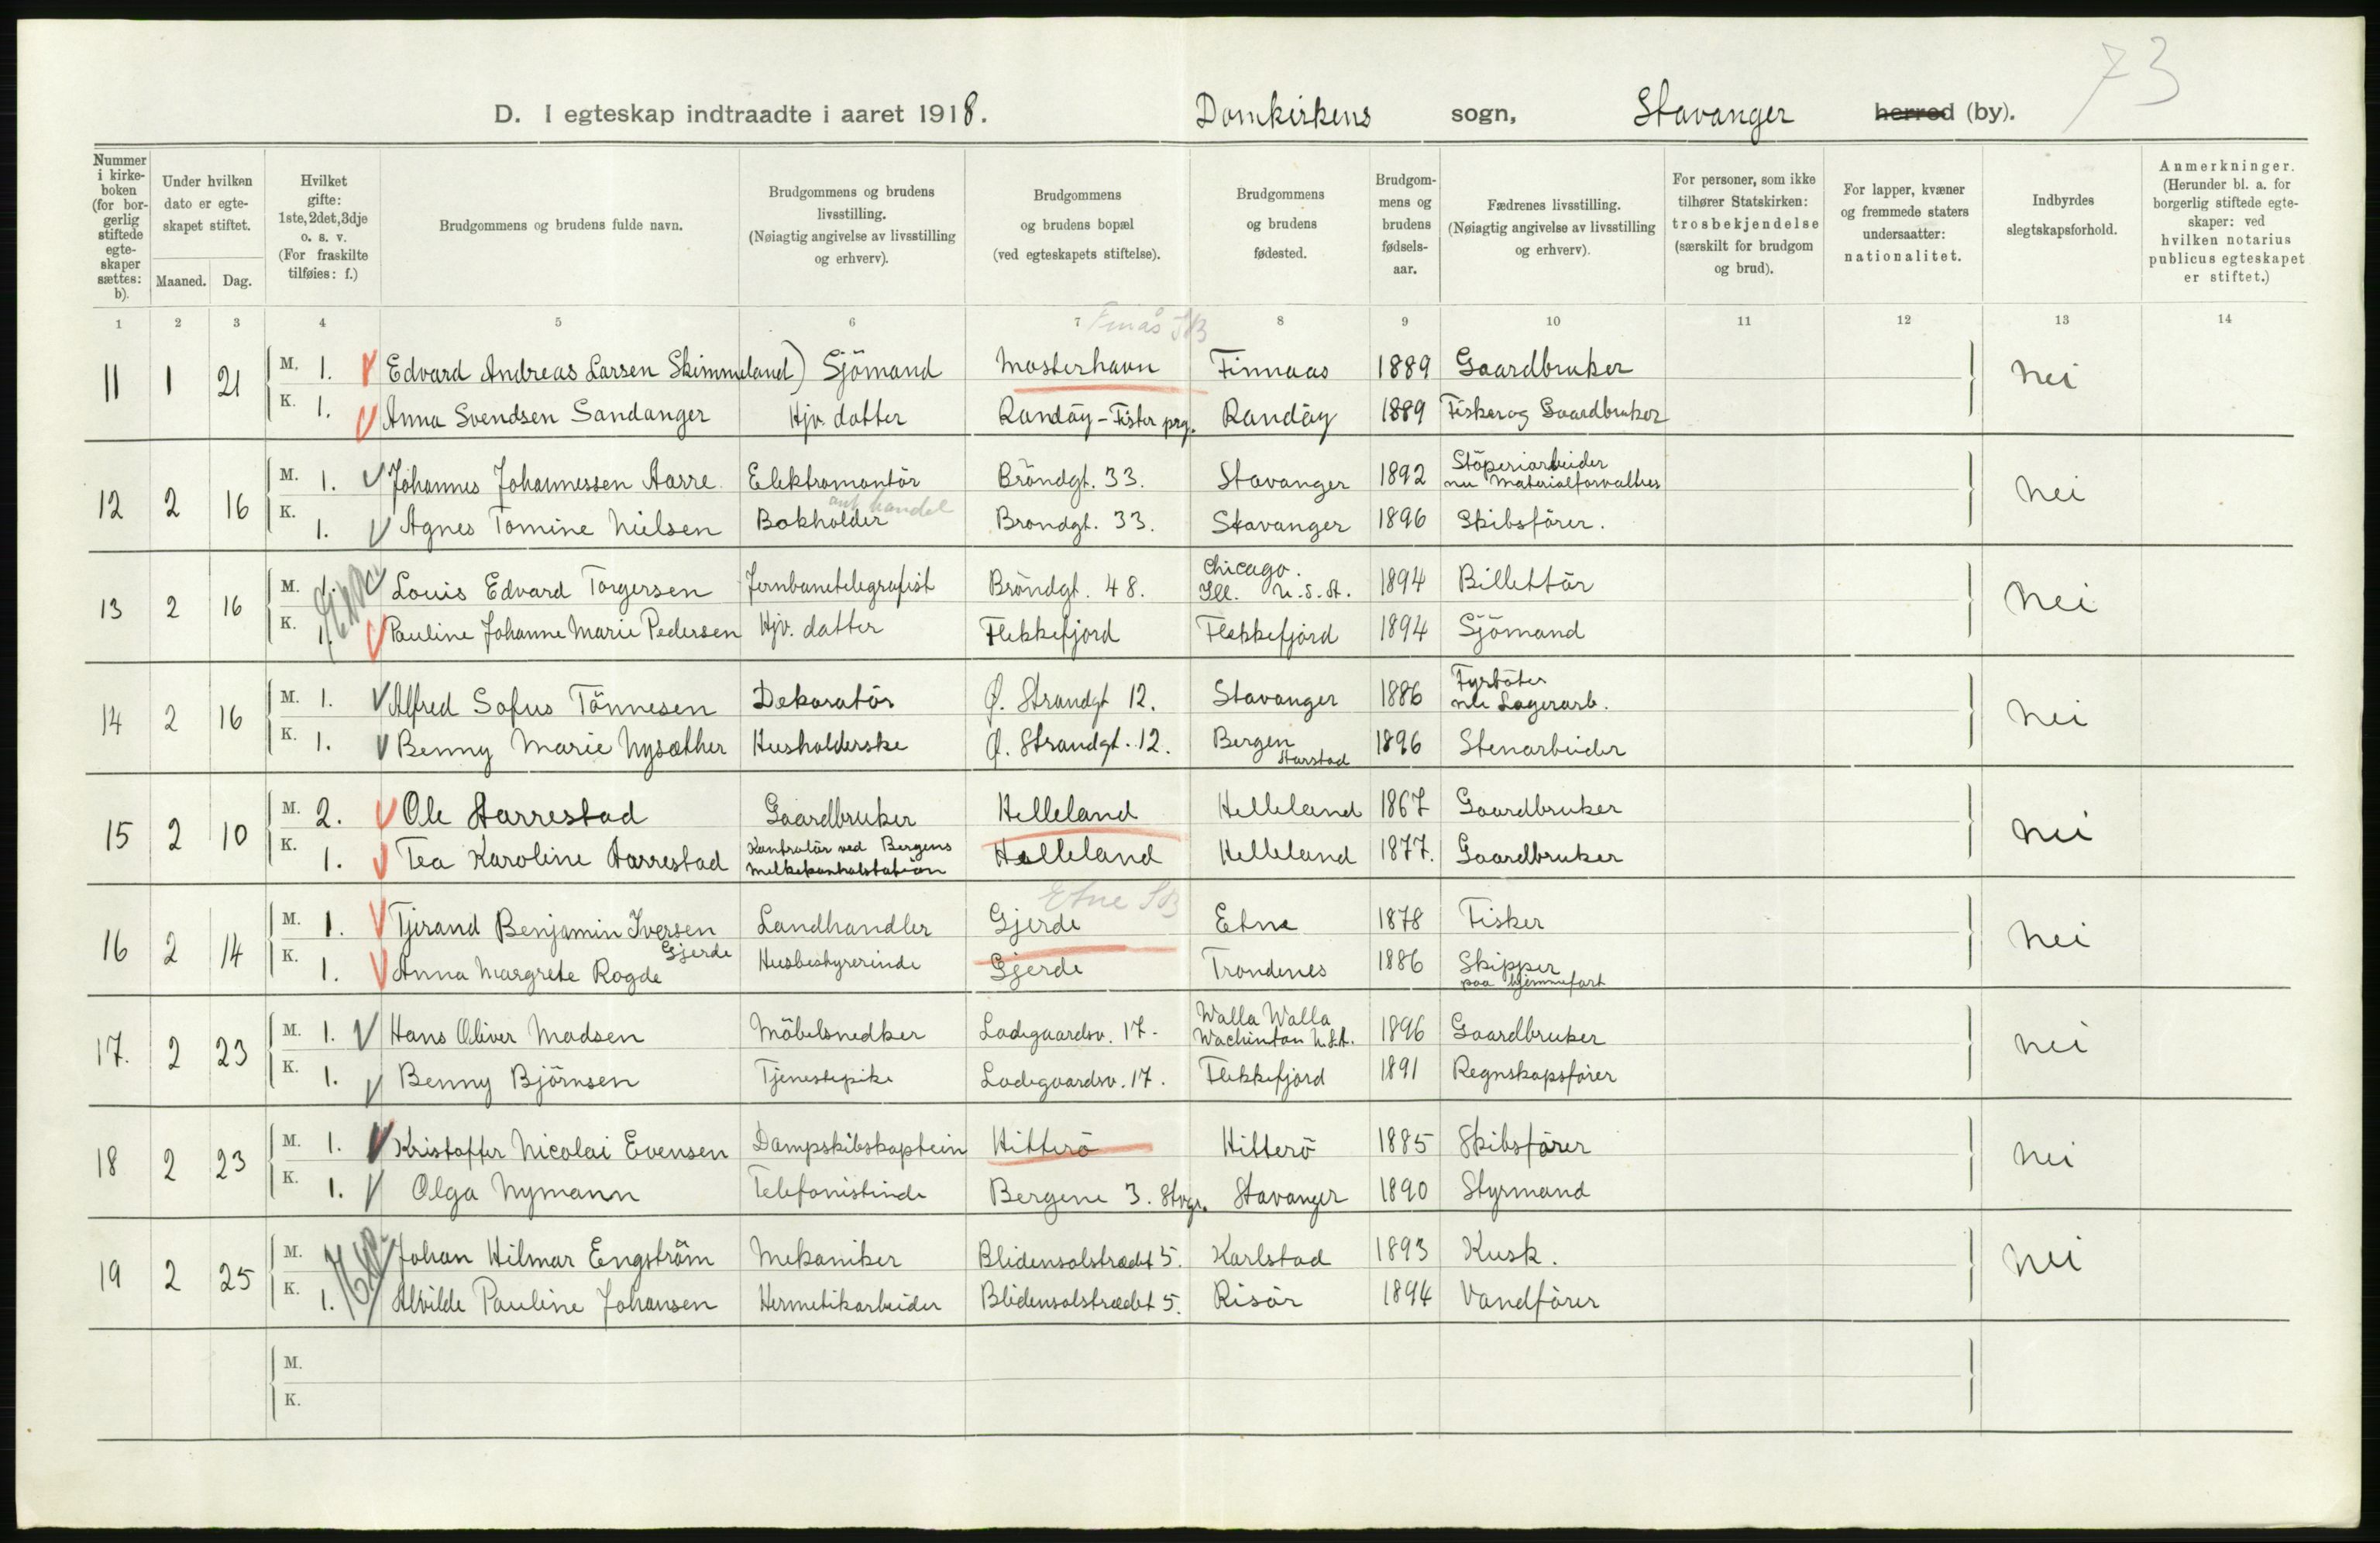 73
D. I egteskap indtraadte i aaret 1918. Domkirkens sogn, Stavanger herred (by).
Nummer i kirkeboken (for borgerlig stiftede egteskaper sættes: b). Under hvilken dato er egteskapet stiftet. Maaned. Dag. Hvilket gifte: 1ste, 2det, 3dje o. s. v. (For fraskilte tilføies: f.) Brudgommens og brudens fulde navn. Brudgommens og brudens livsstilling. (Nøiagtig angivelse av livsstilling og erhverv). Brudgommens og brudens bopæl (ved egteskapets stiftelse). Brudgommens og brudens fødested. Brudgommens og brudens fødselsaar. Fædrenes livsstilling. (Nøiagtig angivelse av livsstilling og erhverv). For personer, som ikke tilhører Statskirken: trosbekjendelse (særskilt for brudgom og brud). For lapper, kvæner og fremmede staters undersaatter: nationalitet. Indbyrdes slegtskapsforhold. Anmerkninger. (Herunder bl. a. for borgerlig stiftede egteskaper: ved hvilken notarius publicus egteskapet er stiftet.)
1 2 3 4 5 6 7 8 9 10 11 12 13 14
11 1 21 M. 1. Edvard Andreas Larsen Skimmeland) Sjömand Mosterhavn Finnaas 1889 Gaardbruker nei
K. 1. Anna Svendsen Sandanger Hjv. datter Randöy - Fister prg. Randöy 1889 Fisker og Gaardbruker
12 2 16 M. 1. Johannes Johannessen Aarre Elektromontör Bröndgt. 33. Stavanger 1892 Stöperiarbeider nu Materialforvalter nei
K. 1. Agnes Tomine Nielsen Bokholder handel Bröndgt. 33. Stavanger 1896 Skibsförer.
13 2 16 M. 1. Louis Edvard Torgersen Jernbanetelegrafist Bröndgt. 48. Chicago. Ill. U.S.St. 1894 Billettör nei
K. 1. Pauline Johanne Marie Pedersen Hjv. datter Flekkefjord Flekkefjord 1894 Sjömand
14 2 16 M. 1. Alfred Sofus Tönnesen Dekoratör Ø. Strandgt 12. Stavanger 1886 Fyrböter nu Lagerarb. nei
K. 1. Benny Marie Nysæther Husholderske Ø. Strandgt. 12. Bergen 1896 Stenarbeider
15 2 10 M. 2. Ole Aarrestad Gaardbruker Helleland Helleland 1867 Gaardbruker nei
K. 1. Tea Karoline Aarrestad Kontrolör ved Bergens melkekontrolstation Helleland Helleland 1877. Gaardbruker
Etne
16 2 14 M. 1. Tjerand Benjamin Iversen Gjerde Landhandler Gjerde Etne 1878 Fisker nei
K. 1. Anna Margrete Rogde Husbestyrerinde Gjerde Trondenes 1886 Skipper paa hjemmefart
17. 2 23 M. 1. Hans Oliver Madsen Möbelsnedker Ladegaardsv. 17. Walla Walla Wachinton U.S.A. 1896 Gaardbruker nei
K. 1. Benny Björnsen Tjenestepike Ladegaardsv. 17. Flekkefjord 1891 Regnskapsförer
18 2 23 M. 1. Kristoffer Nicolai Evensen Dampskibskaptein Hitterö Hitterö 1885 Skibsförer nei
K. 1. Olga Nymann Telefonistinde Bergene 3. Stvgr. Stavanger 1890 Styrmand
19 2 25 M. 1. Johan Hilmar Engström Mekaniker Blidensolstrædet 5. Karlstad 1893 Kusk. nei
K. 1. Alvilde Pauline Johansen Hermetikarbeider Blidensolstrædet 5. Risör 1894 Vandförer
M.
K.